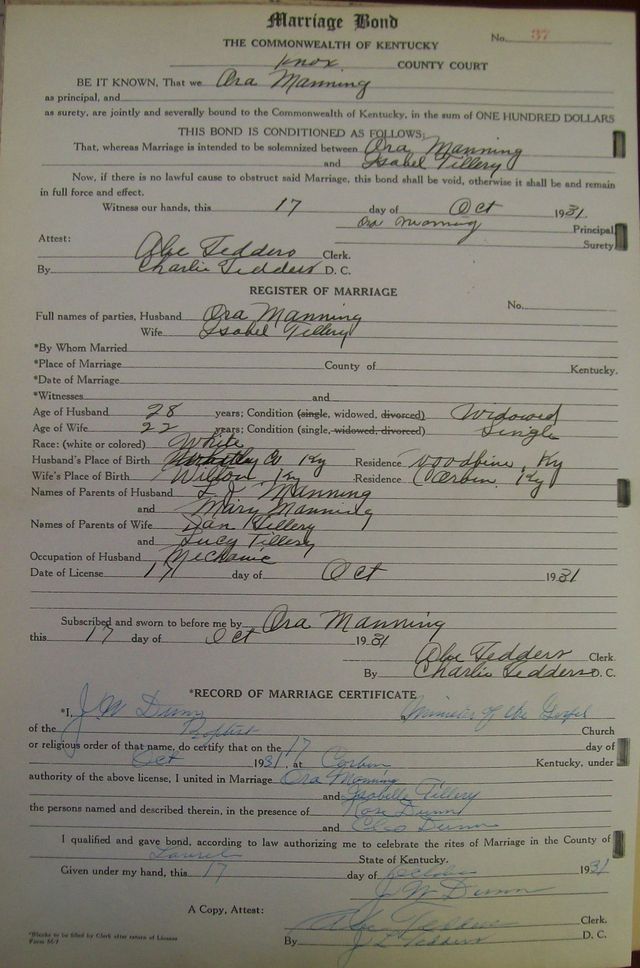 Marriage Bond
No. 37
THE COMMONWEALTH OF KENTUCKY
Knox COUNTY COURT
BE IT KNOWN, That we Ora Manning
as principal, and
as surety, are jointly and severally bound to the Commonwealth of Kentucky, in the sum of ONE HUNDRED DOLLARS
THIS BOND IS CONDITIONED AS FOLLOWS:
That, whereas Marriage is intended to be solemnized between Ora Manning
and Isabel Tillery
Now, if there is no lawful cause to obstruct said Marriage, this bond shall be void, otherwise it shall be and remain
in full force and effect.
Witness our hands, this 17 day of Oct 1931
Ora Manning Principal
Surety
Attest:
Abe Tedders Clerk.
By Charlie Tedders D. C.
REGISTER OF MARRIAGE
No.
Full names of parties, Husband Ora Manning
Wife Isabel Tillery
*By Whom Married
*Place of Marriage County of Kentucky.
*Date of Marriage
*Witnesses and
Age of Husband 28 years; Condition (single, widowed, divorced) Widowed
Age of Wife 22 years; Condition (single, widowed, divorced) Single
Race: (white or colored) White
Husband's Place of Birth Whitley Co Ky Residence Woodbine, Ky
Wife's Place of Birth Wilton, Ky Residence Corbin, Ky
Names of Parents of Husband Manning
and Mary Manning
Names of Parents of Wife Dan Tillery
and Lucy Tillery
Occupation of Husband Mechanic
Date of License 17 day of Oct 1931
Subscribed and sworn to before me by Ora Manning
this 17 day of Oct 1931
Abe Tedders Clerk.
By Charlie Tedders D. C.
*RECORD OF MARRIAGE CERTIFICATE
*I, J W Dunn Minister of the Gospel
of the Baptist Church
or religious order of that name, do certify that on the 17 day of
Oct 1931, at Corbin Kentucky, under
authority of the above license, I united in Marriage Ora Manning
and Isabelle Tillery
the persons named and described therein, in the presence of Rose Dunn
and Cleo Dunn
I qualified and gave bond, according to law authorizing me to celebrate the rites of Marriage in the County of
Laurel State of Kentucky.
Given under my hand, this 17 day of October 1931
J W Dunn
A Copy, Attest:
Abe Tedders Clerk.
By J L Tedders D. C.
*Blanks to be filled by Clerk after return of License
Form M-7